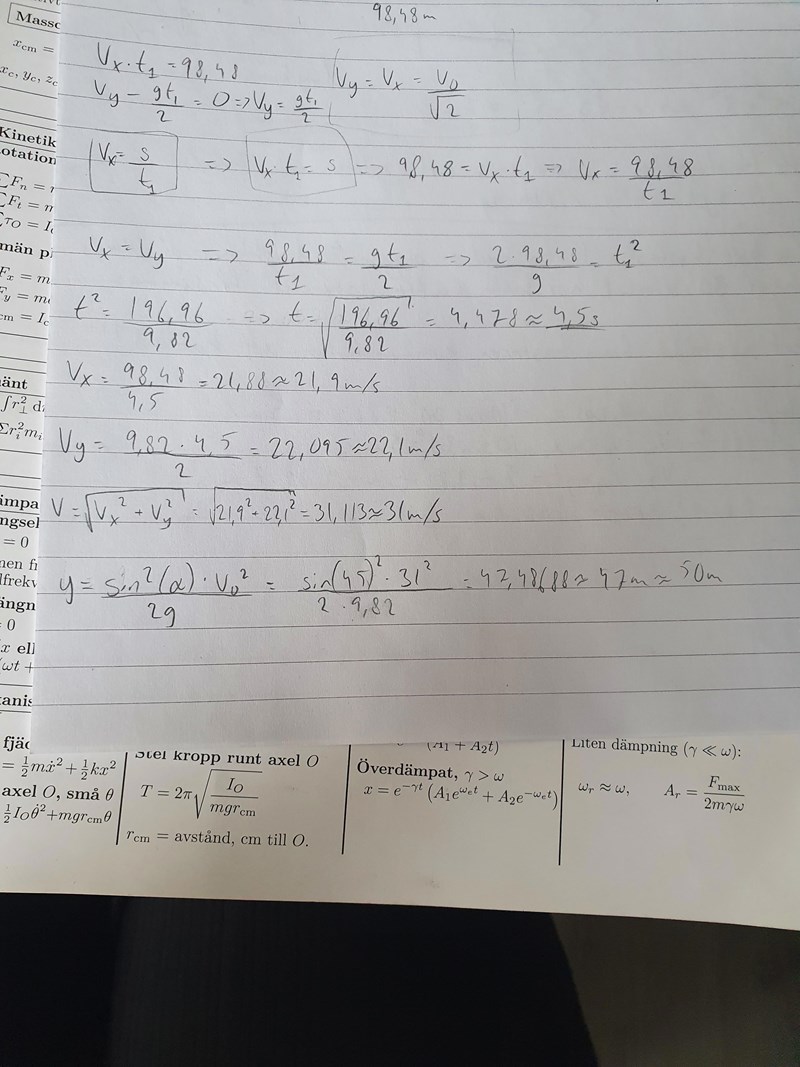 Massc
x_cm =
x_c, y_c, z_c
Kinetik
otation
∑F_n =
∑F_t = m
∑τ_O = I
män p
F_x = m
F_y = m
cm = I_c
änt
∫r²_⊥ d
Σr_i²m_i
ämpa
ngsel
= 0
nen f
lfrekv
ängn
= 0
x ell
(ωt +
anis
98,48m
V_x · t_1 = 98,48
V_y = V_x = V_0/√2
V_y − gt_1/2 = 0 => V_y = gt_1/2
V_x = s/t_1 => V_x · t_1 = s => 98,48 = V_x · t_1 => V_x = 98,48/t_1
V_x = V_y => 98,48/t_1 = gt_1/2 => 2·98,48/g = t_1²
t² = 196,96/9,82 => t = √(196,96/9,82) = 4,478 ≈ 4,5s
V_x = 98,48/4,5 = 21,88 ≈ 21,9m/s
V_y = 9,82 · 4,5/2 = 22,095 ≈ 22,1m/s
V = √(V_x² + V_y²) = √(21,9² + 22,1²) = 31,113 ≈ 31m/s
y = sin²(α) · V_0²/2g = sin(45)² · 31²/2 · 9,82 = 47,48688 ≈ 47m ≈ 50m
fjäd
= ½mẋ² + ½kx²
axel O, små θ
½I_Oθ̇² + mgr_cmθ
Stel kropp runt axel O
T = 2π√(I_O/mgr_cm)
r_cm = avstånd, cm till O.
(A_1 + A_2t)
Överdämpat, γ > ω
x = e^{−γt} (A_1e^{ω_et} + A_2e^{−ω_et})
Liten dämpning (γ ≪ ω):
ω_r ≈ ω, A_r = F_max/2mγω